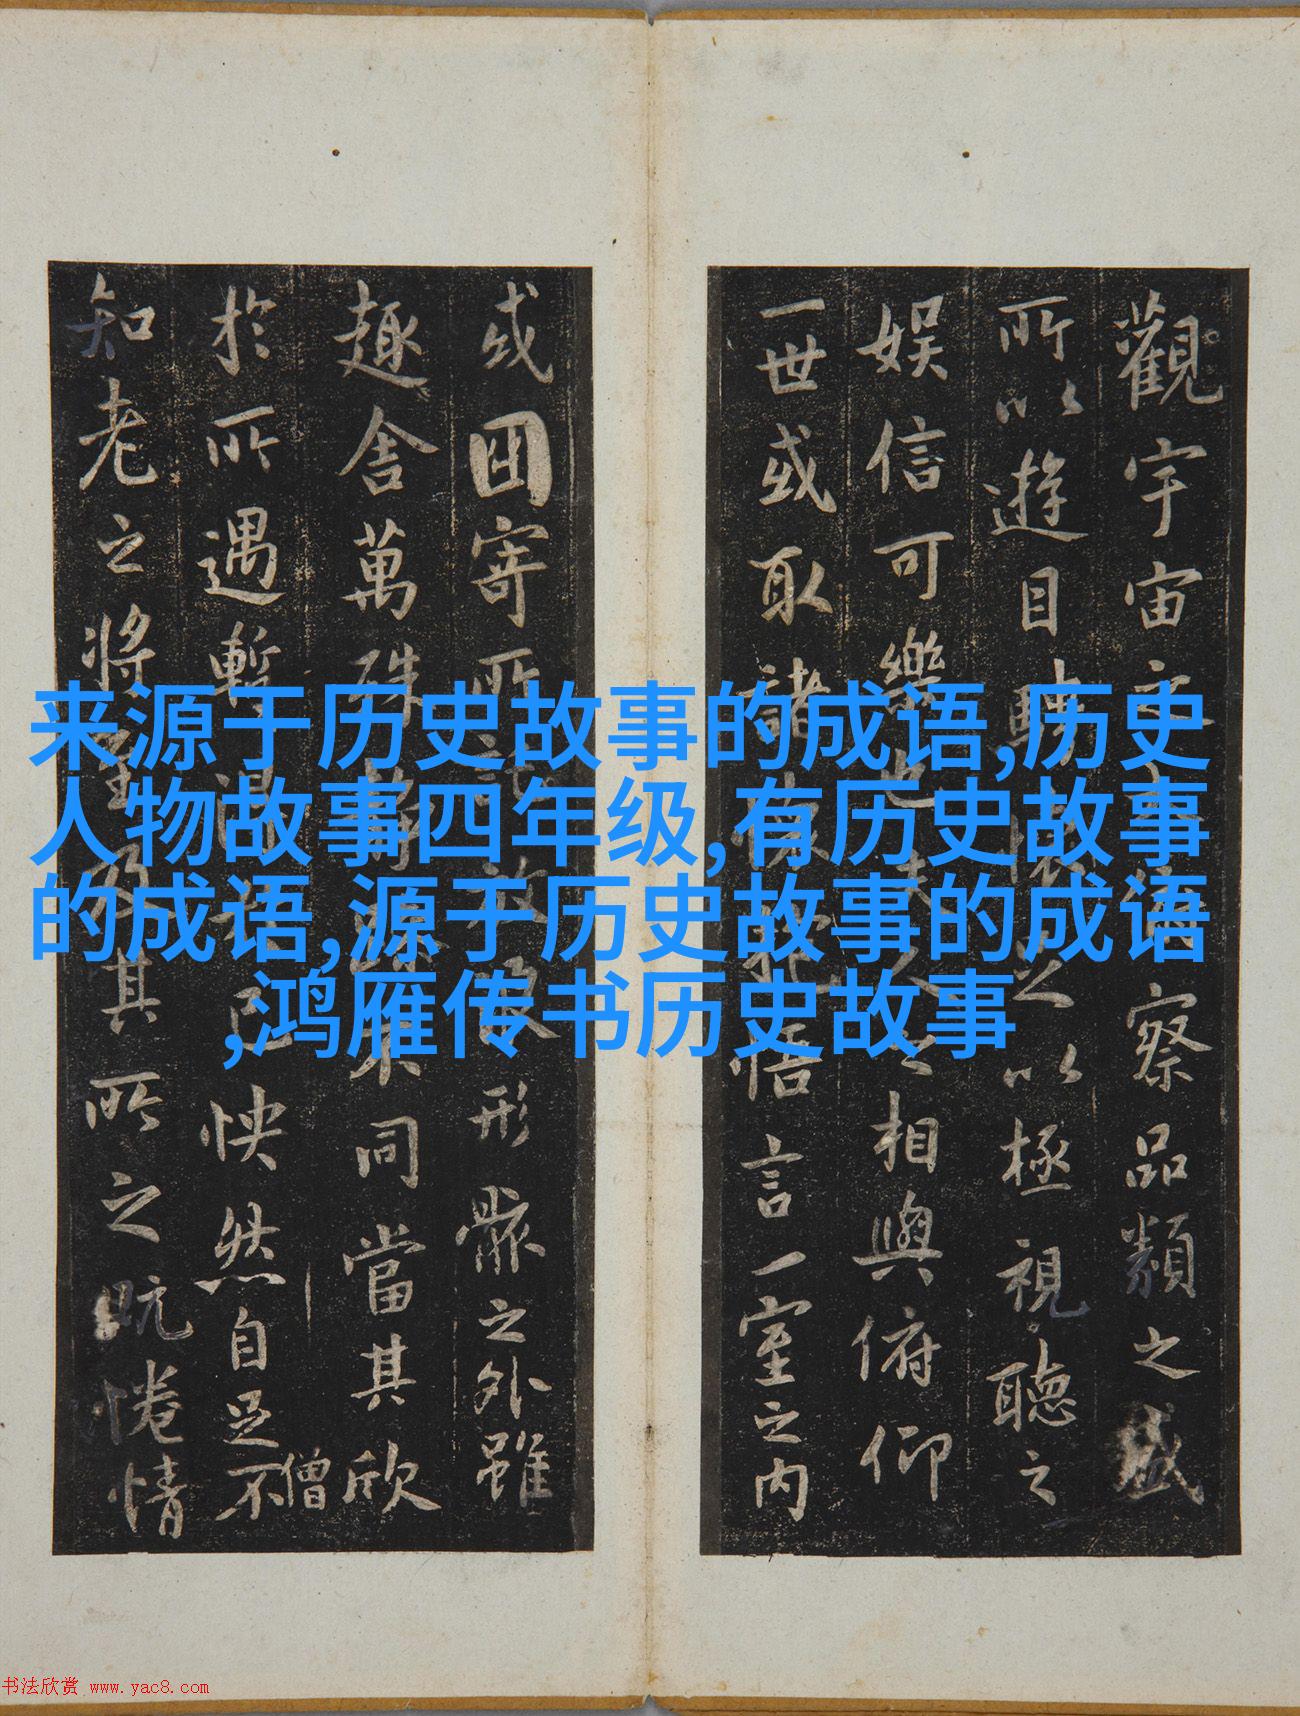 觀宇宙之察品類之盛
所以遊目騁懷足以極視聽之
娱信可樂也夫人之相與俯仰
一世或取諸懷抱悟言一室之内
或因寄所託放浪形骸之外雖
趣舍萬殊静躁不同當其欣
僧
於所遇暫得於己怏然自足不
知老之將至及其所之既惓情
来源于历史故事的成语,历史
人物故事四年级,有历史故事
的成语,源于历史故事的成语
,鸿雁传书历史故事
书法欣赏 www.yac8.com